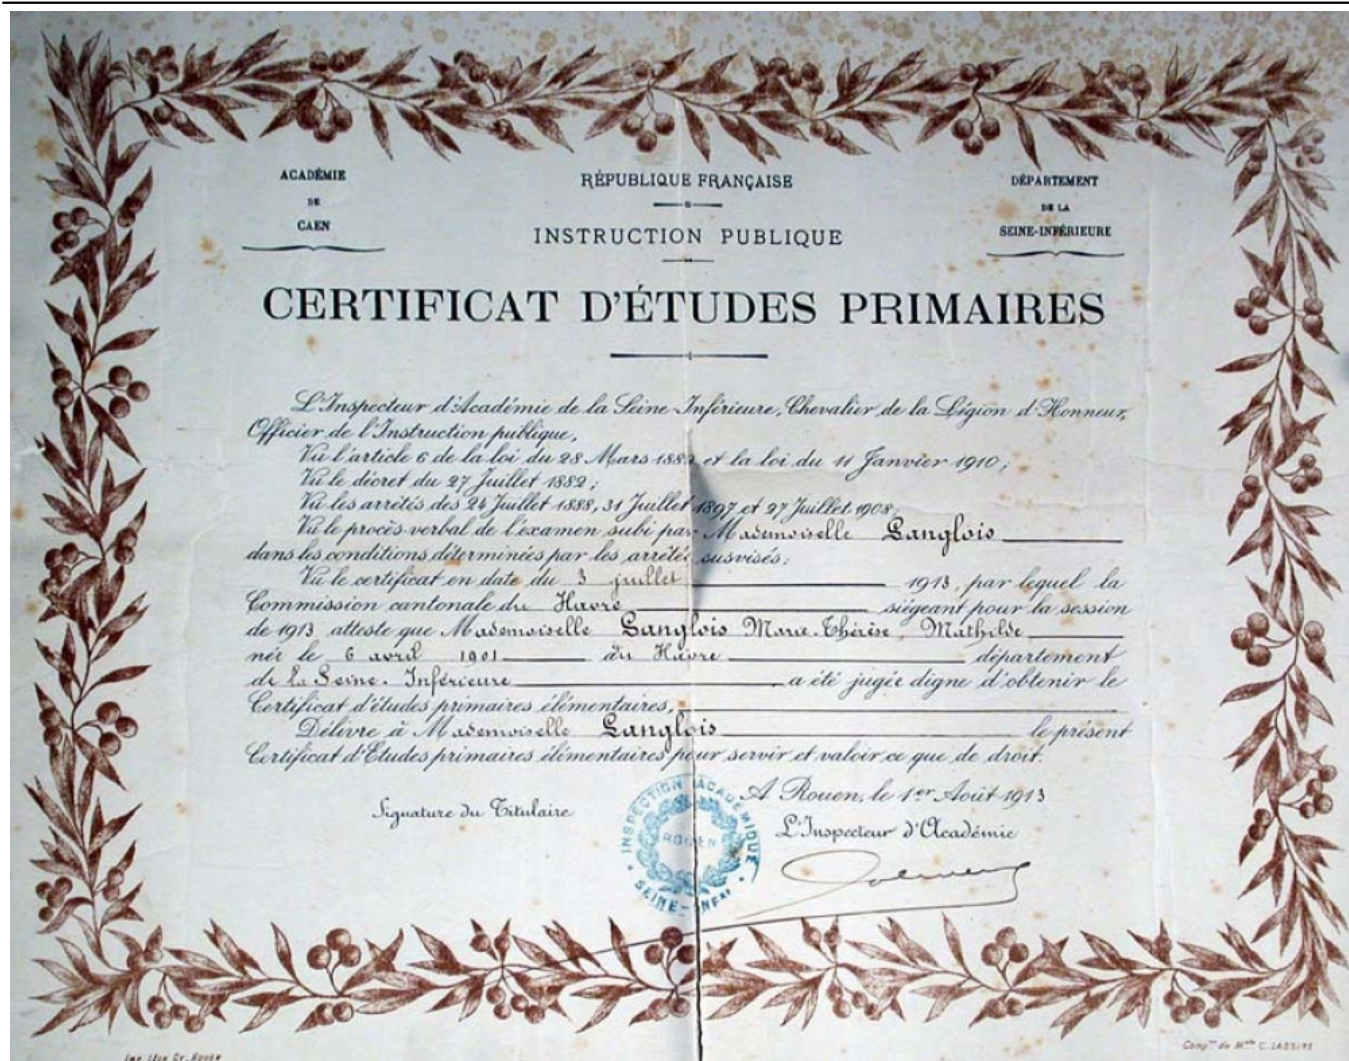 ACADÉMIE
DE
CAEN
RÉPUBLIQUE FRANÇAISE
INSTRUCTION PUBLIQUE
DÉPARTEMENT
DE LA
SEINE-INFÉRIEURE
CERTIFICAT D'ÉTUDES PRIMAIRES
L'Inspecteur d'Académie de la Seine Inférieure, Chevalier de la Légion d'Honneur,
Officier de l'Instruction publique,
Vu l'article 6 de la loi du 28 Mars 1882 et la loi du 11 Janvier 1910;
Vu le décret du 27 Juillet 1882;
Vu les arrêtés des 24 Juillet 1888, 31 Juillet 1897 et 27 Juillet 1908;
Vu le procès-verbal de l'examen subi par Mademoiselle Langlois
dans les conditions déterminées par les arrêtés susvisés;
Vu le certificat en date du 3 juillet 1913, par lequel la
Commission cantonale du Havre siégeant pour la session
de 1913 atteste que Mademoiselle Langlois Marie-Thérèse, Mathilde
née le 6 avril 1901 au Havre département
de la Seine-Inférieure a été jugée digne d'obtenir le
Certificat d'études primaires élémentaires,
Délivre à Mademoiselle Langlois le présent
Certificat d'Études primaires élémentaires pour servir et valoir ce que de droit.
A Rouen, le 1er Août 1913
Signature du Titulaire
L'Inspecteur d'Académie
INSPECTION ACADÉMIQUE
ROUEN
SEINE-INFRE